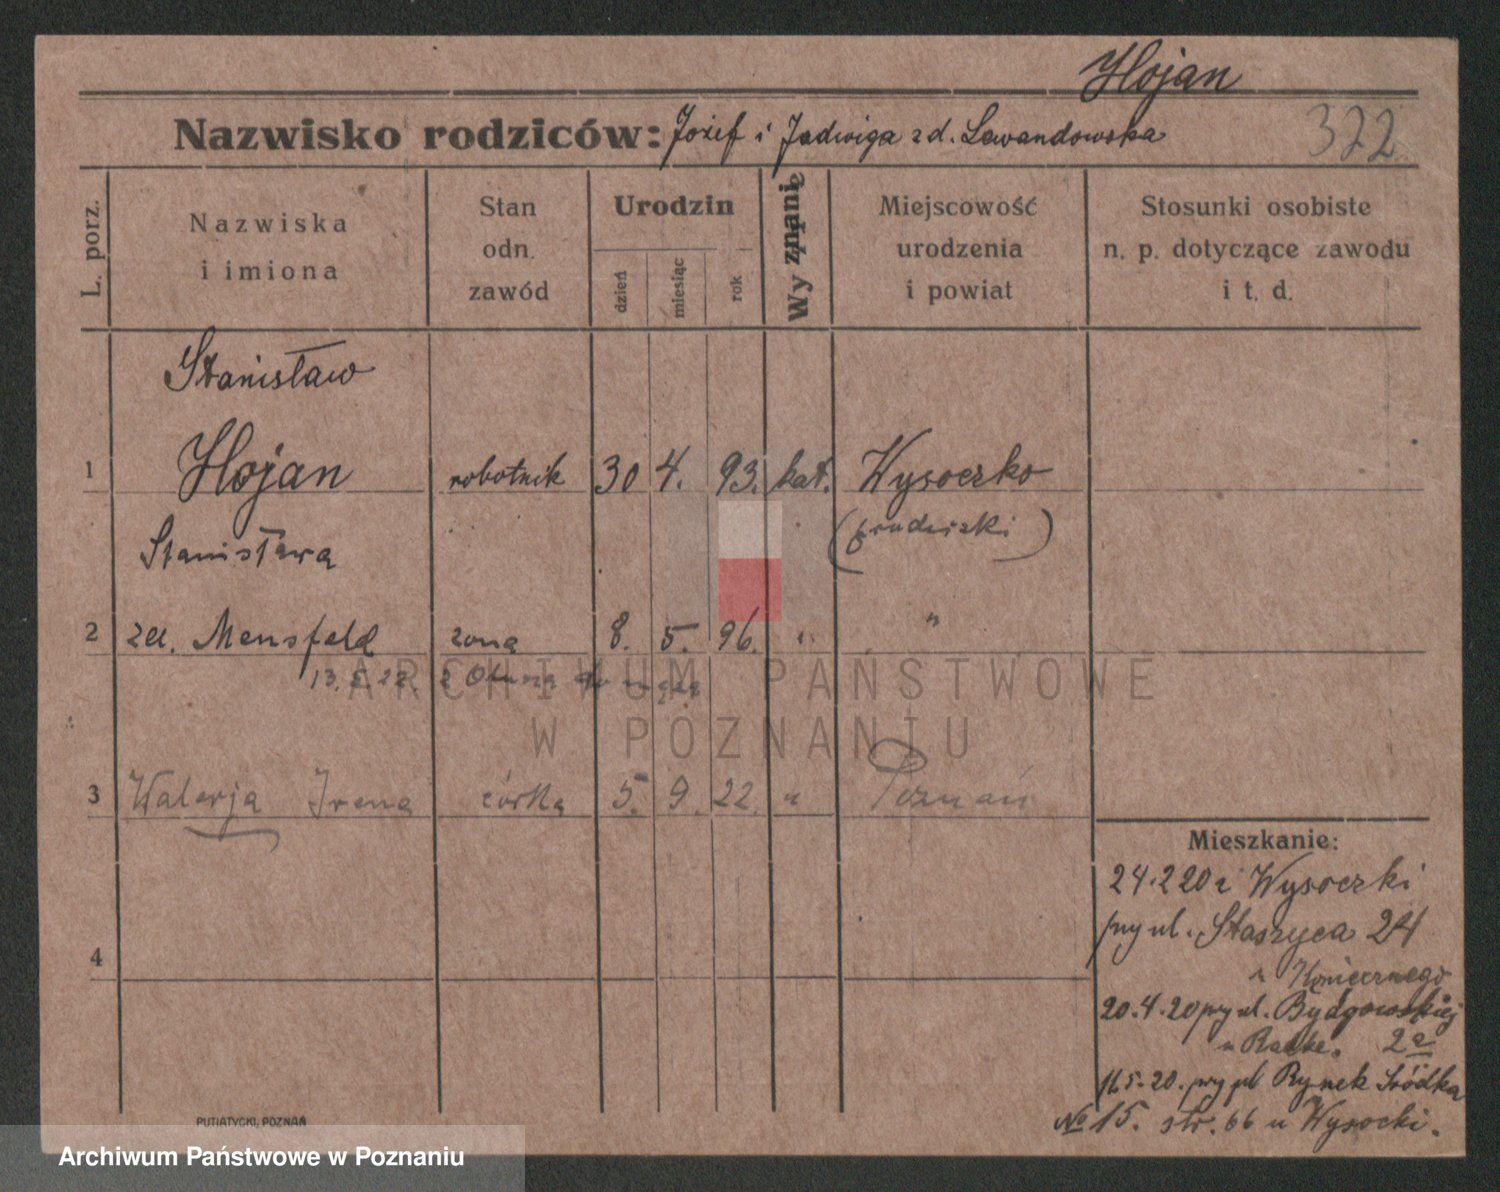 Hojan
Nazwisko rodziców: Józef i Jadwiga z d. Lewandowska
322
L. porz.
Nazwiska
i imiona
Stan
odn.
zawód
Urodzin
dzień
miesiąc
rok
Wyznanie
Miejscowość
urodzenia
i powiat
Stosunki osobiste
n. p. dotyczące zawodu
i t. d.
Stanisław
1 Hojan robotnik 30 4. 93. kat. Wysoczko
Stanisława
2 zd. Mensfeld żona 8. 5. 96. " "
13. 22. z do
3 Walerja Irena córka 5. 9. 22. " Poznań
4
Mieszkanie:
24.2 20 z Wysoczki
przy ul. Staszyca 24
u
20.4.20 przy ul. Bydgowskiej
u 2a
16.5.20. przy pl Rynek Śródka
№ 15. str. 66 u Wysocki.
PUTIATYCKI, POZNAŃ
ARCHIWUM PAŃSTWOWE
W POZNANIU
Archiwum Państwowe w Poznaniu